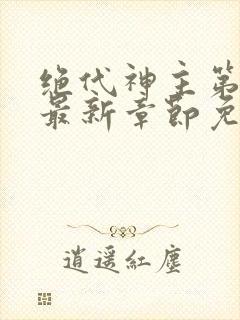 绝代神主第
最新章节免
逍遥紅塵